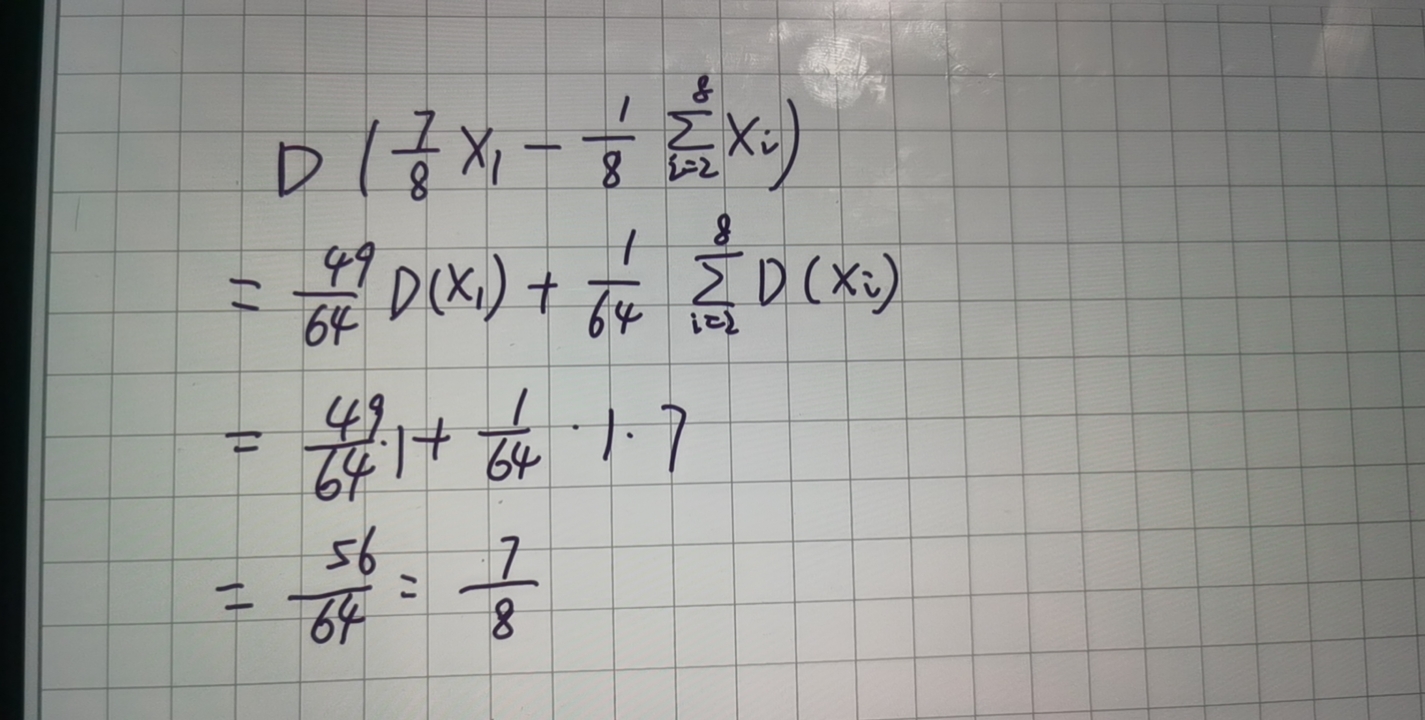 D ( 7/8 X₁ − 1/8 ∑_{i=2}^{8} Xᵢ )
= 49/64 D(X₁) + 1/64 ∑_{i=2}^{8} D(Xᵢ)
= 49/64 · 1 + 1/64 · 1 · 7
= 56/64 = 7/8